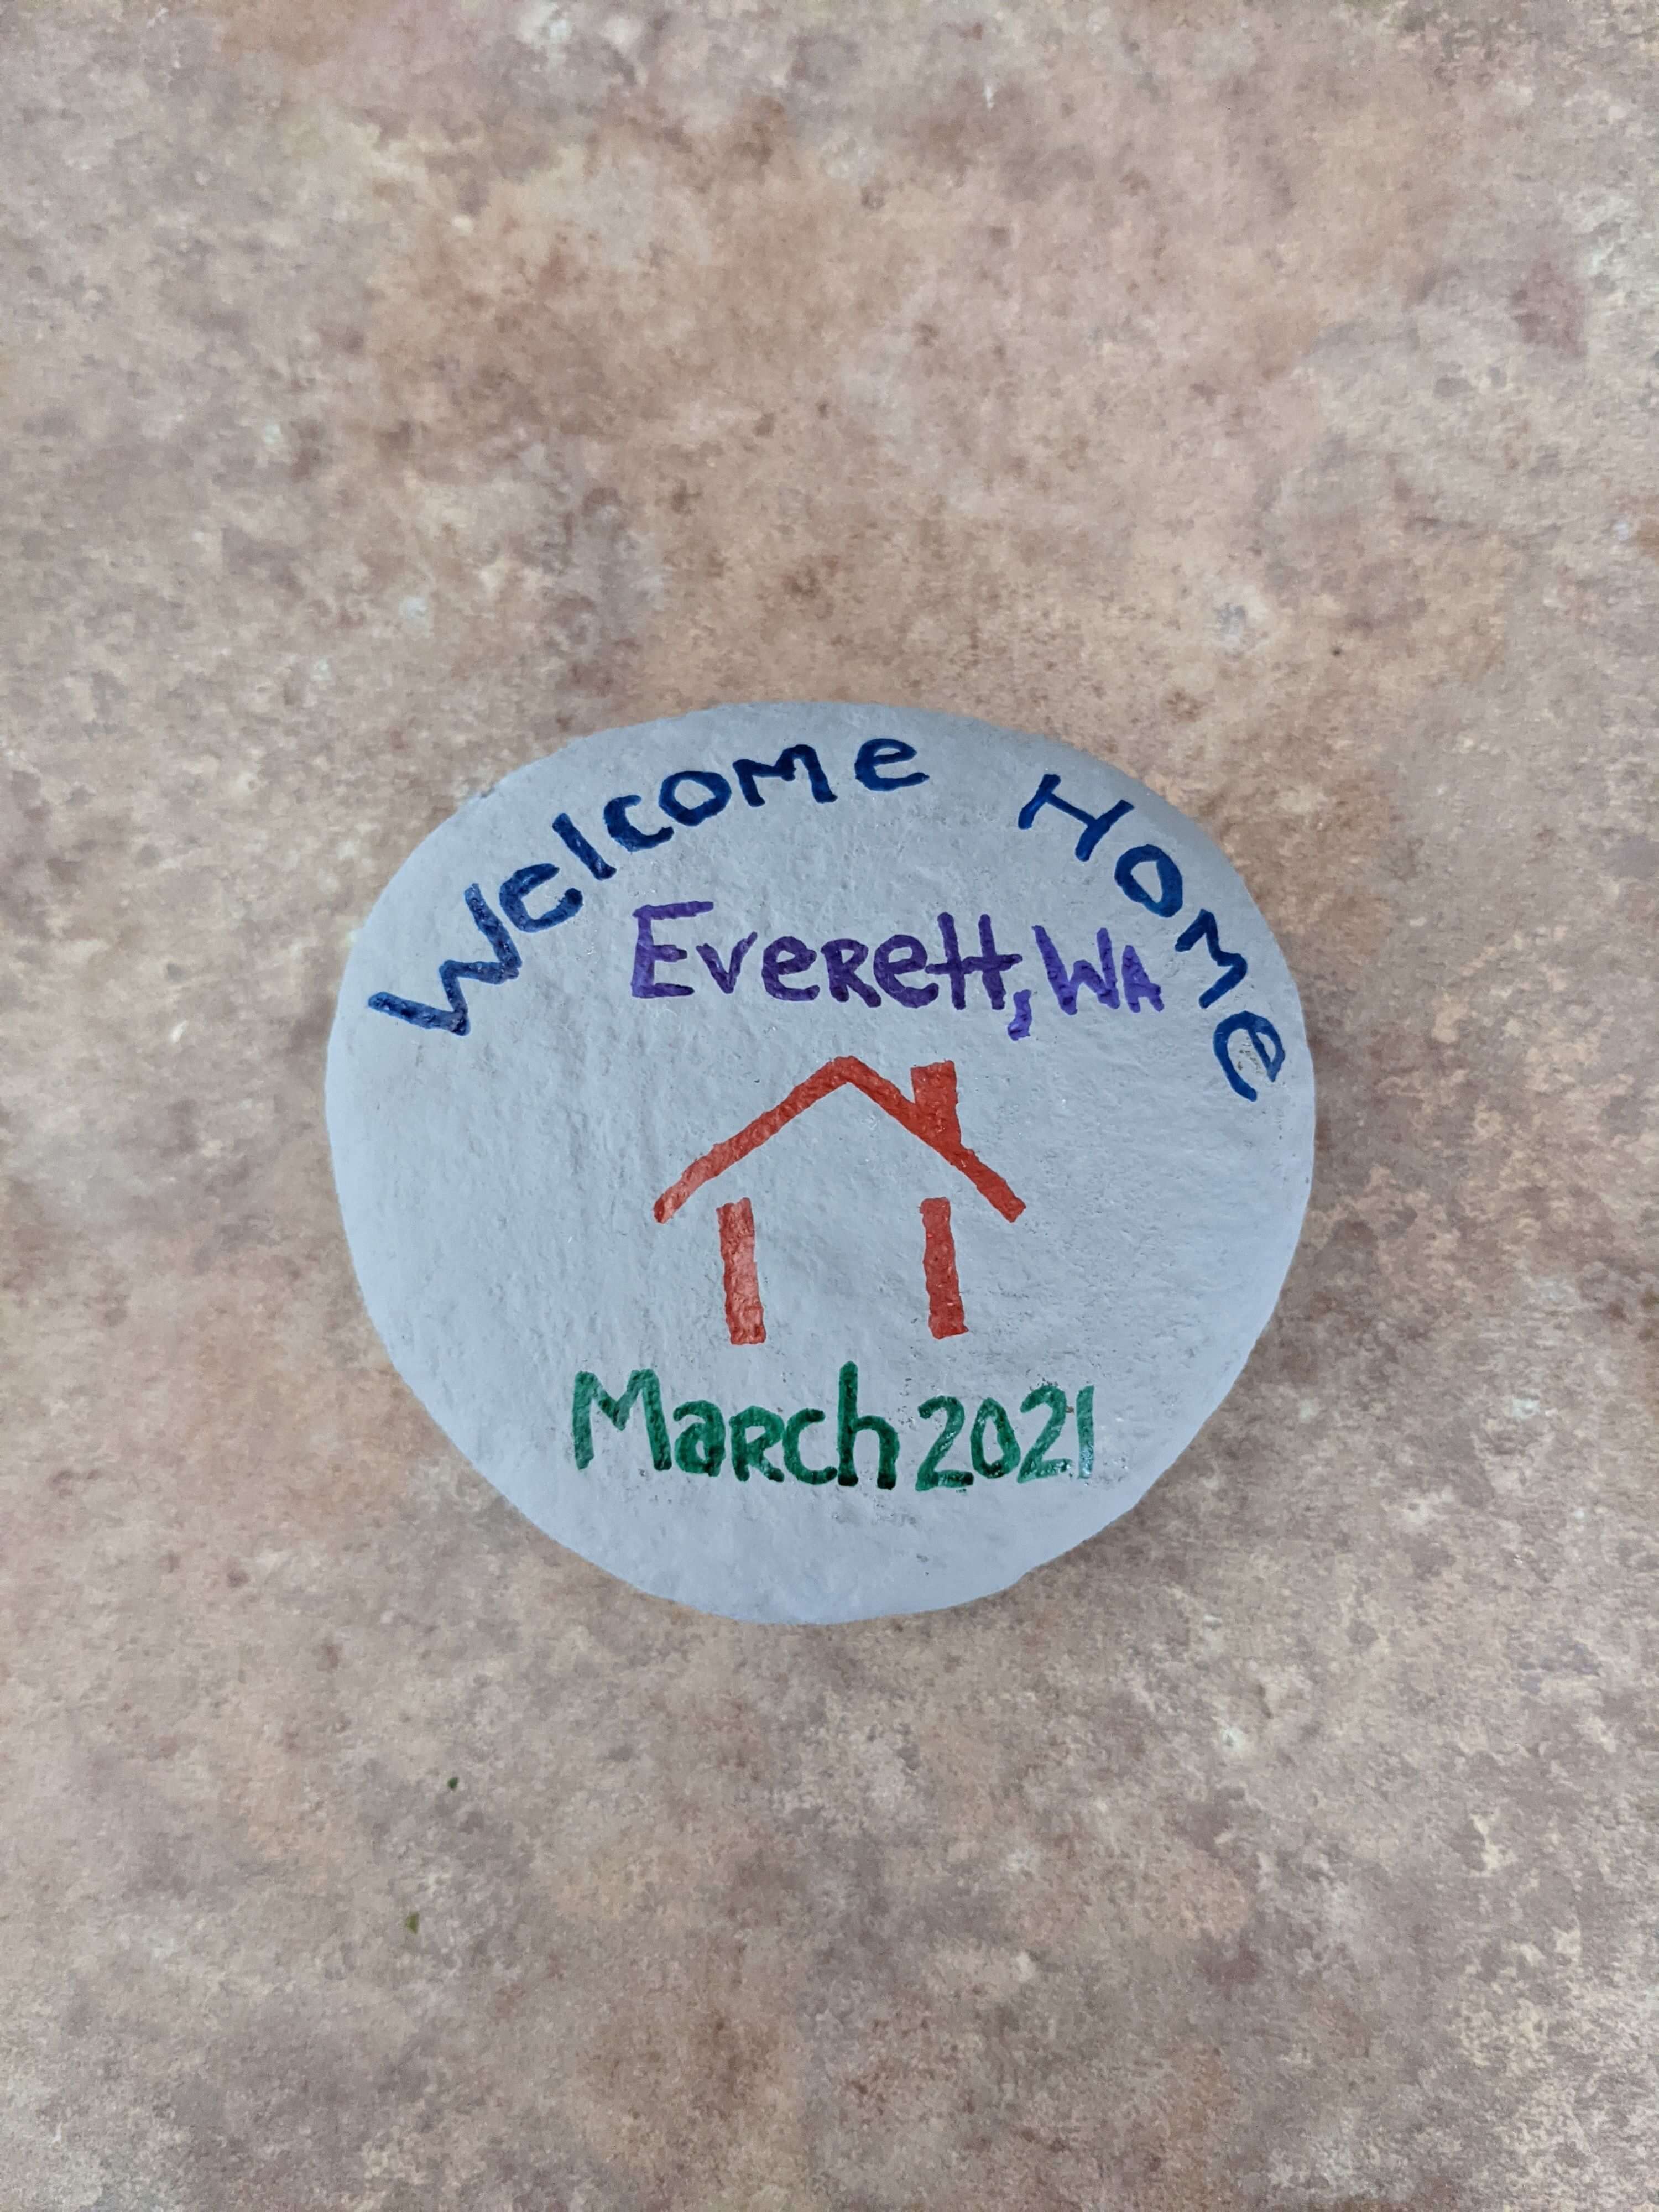 Welcome Home
Everett, WA
March 2021